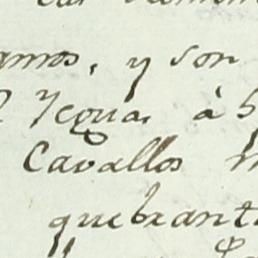 amos, y son
Yeguas à 5
Cavallos
quebrant